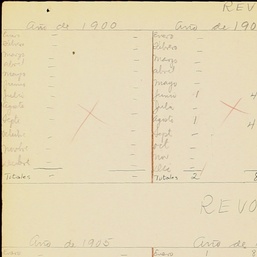 REVO
Año de 1900
Enero –
Febrero –
Marzo –
Abril –
Mayo –
Junio –
Julio –
Agosto –
Sept –
Octubre –
Novbre –
Dicbre –
Totales –
Año de 190
Enero –
Febrero –
Marzo –
Abril –
Mayo –
Junio 1 4
Julio –
Agosto 1 4
Sept –
Oct –
Nov –
Dic –
Totales 2 8
REVO
Año de 1905
Año de
Enero 1 8